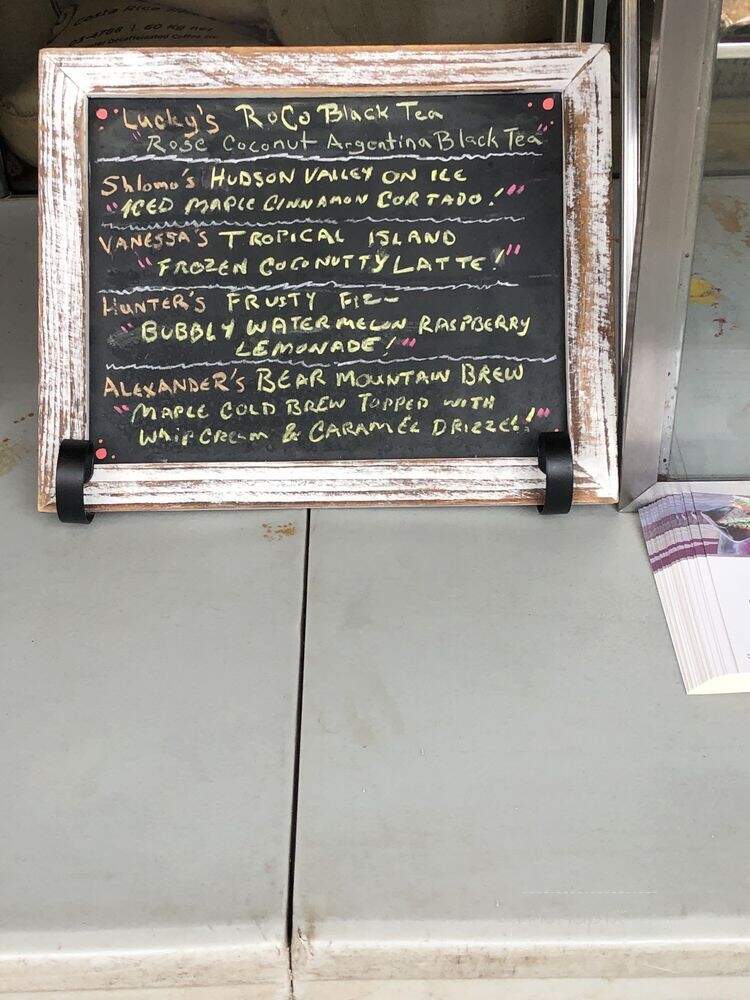 Costa Rica
03-4766 | 60 KG net
Decaffeinated Coffee
Lucky's RoCo Black Tea
"Rose Coconut Argentina Black Tea"
Shlomo's HUDSON VALLEY ON ICE
"ICED MAPLE CINNAMON CORTADO!"
VANESSA'S TROPICAL ISLAND
"FROZEN COCONUTTY LATTE!"
HUNTER'S FRUSTY FIZ
"BUBBLY WATERMELON RASPBERRY
LEMONADE!"
ALEXANDER'S BEAR MOUNTAIN BREW
"MAPLE COLD BREW TOPPED WITH
WHIP CREAM & CARAMEL DRIZZEL!"